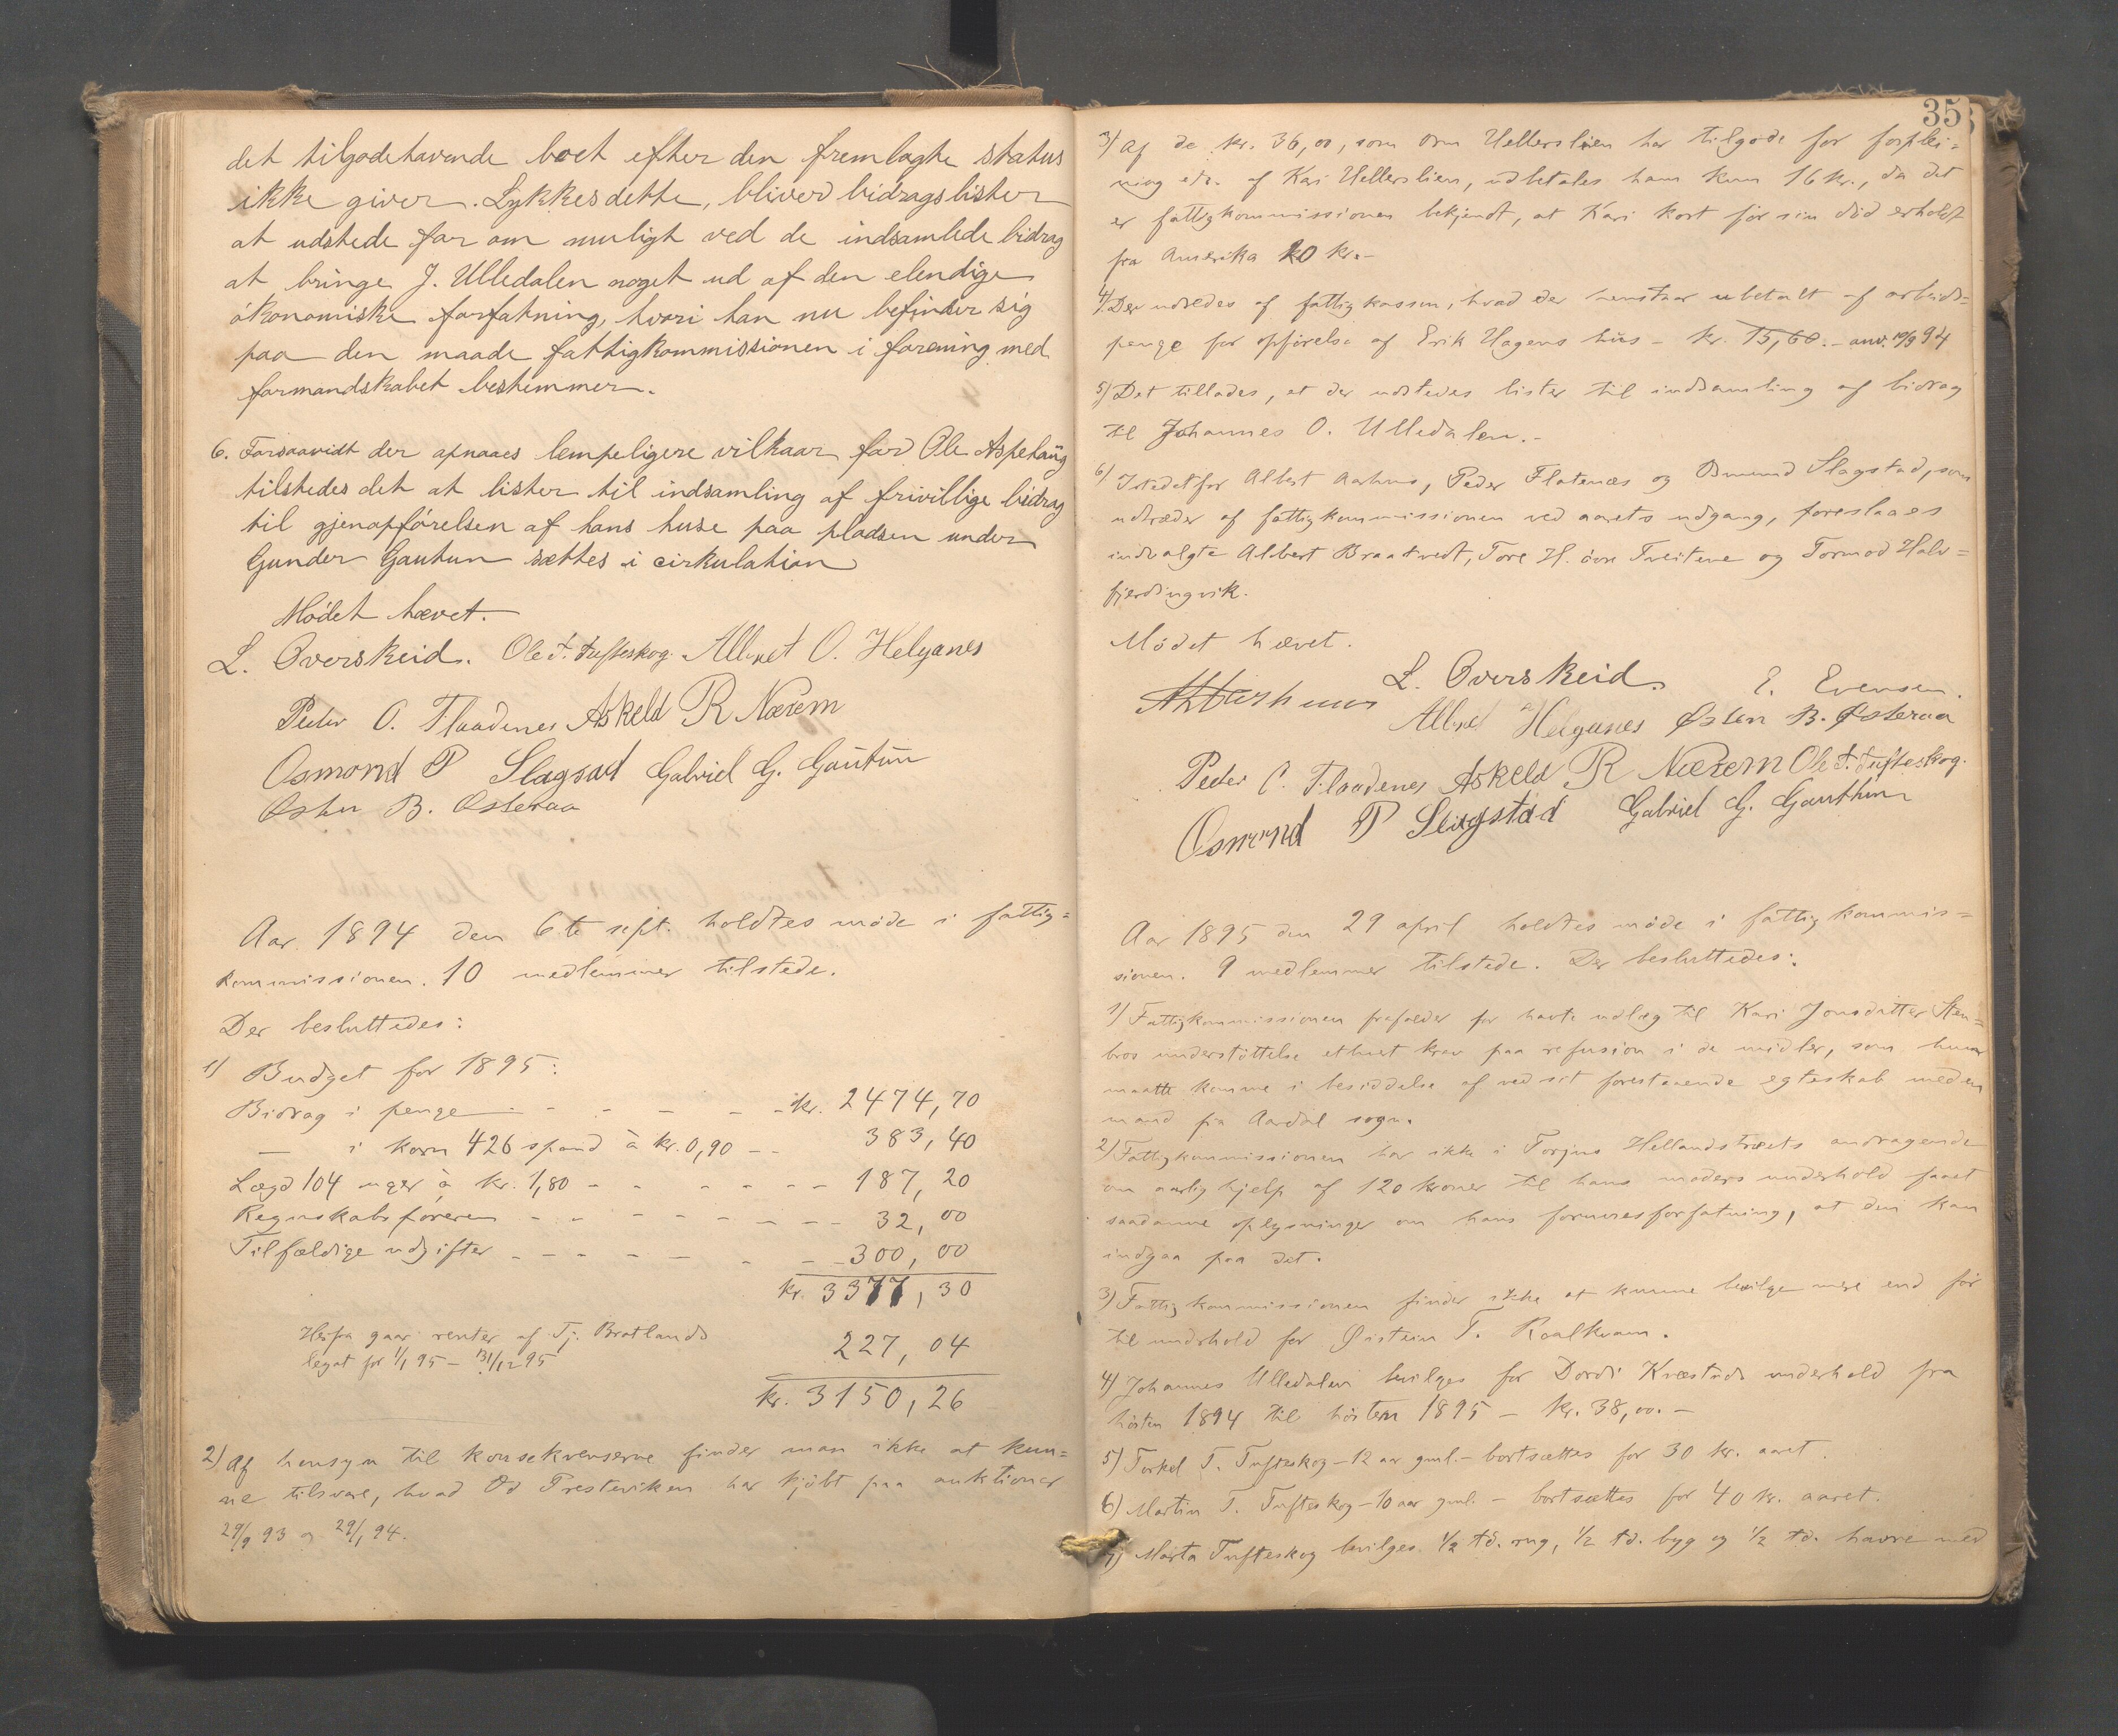 det tilgodehavende boet efter den fremlagte status
ikke giver. Lykkes dette, bliver bidragslister
at udstede for om muligt ved de indsamlede bidrag
at bringe J. Ulledalen noget ud af den elendige
økonomiske forfatning, hvori han nu befinder sig
paa den maade fattigkommissionen i forening med
formandskabet bestemmer.
6. Forsaavidt der opnaaes lempeligere vilkaar for Ole Aspehaug
tilstedes det at lister til indsamling af frivillige bidrag
til gjenopførelsen af hans huse paa pladsen under
Gunder Gautun sættes i cirkulation
Mødet hævet.
L. Overskeid. Ole T. Tufteskog. Albert O. Helganes
Peder O. Flaadenes Askeld R Nærem
Osmond P Slagstad Gabriel G. Gautun
Østen B. Østeraa
Aar 1894 den 6te sept. holdtes møde i fattig=
kommissionen. 10 medlemmer tilstede.
Der besluttedes:
1) Budget for 1895:
Bidrag i penge - - - - - - kr. 2474,70
— i korn 426 spand à kr. 0,90 - - 383,40
Lægd 104 uger à kr. 1,80 - - - - - - - 187,20
Regnskabsføreren - - - - - - - - - 32,00
Tilfældige udgifter - - - - - - - - 300,00
kr. 3377,30
Herfra gaar renter af Tj. Bratlands
legat for 1/1 95 — 31/12 95 227,04
kr. 3150,26
2) Af hensyn til konsekvenserne finder man ikke at kun=
ne tilsvare, hvad Od Presteviken har kjøbt paa auktioner
29/9 93 og 29/1 94.
35
3) Af de kr. 36,00, som Orm Hellerslien har tilgode for forplei=
ning etc. af Kari Hellerslien, udbetales ham kun 16 kr., da det
er fattigkommissionen bekjendt, at Kari kort før sin død erholdt
fra Amerika 20 kr. -
4) Der udredes af fattigkassen, hvad der henstaar ubetalt af arbeids=
penge for opførelse af Erik Hagens hus — kr. 15,60. - anv. 10/9 94
5) Det tillades, at der udstedes lister til indsamling af bidrag
til Johannes O. Ulledalen. -
6) Istedetfor Albert Aarhus, Peder Flatenæs og Osmund Slagstad, som
udtræder af fattigkommissionen ved aarets udgang, foreslaaes
indvalgte Albert Braatvedt, Tore H. övre Tveitene og Tormod Halv=
fjerdingvik.
Mödet hævet.
L. Overskeid. E. Evensen.
Albert Helganes Østen B. Østeraa
Peder O. Flaadenes Askeld R Nærem Ole T. Tufteskog.
Osmond P Slagstad Gabriel G. Gauthun
Aar 1895 den 29 april holdtes møde i fattigkommis=
sionen. 9 medlemmer tilstede. Der besluttedes:
1) Fattigkommissionen frafalder for havte udlæg til Kari Jonsdatter Sten=
bros understøttelse ethvert krav paa refusion i de midler, som hun
maatte komme i besiddelse af ved sit forestaaende egteskab med en
mand fra Aardal sogn.
2) Fattigkommissionen har ikke i Torjus Hellandstræets andragende
om aarlig hjelp af 120 kroner til hans moders underhold faaet
saadanne oplysninger om hans formuesforfatning, at den kan
indgaa paa det.
3) Fattigkommissionen finder ikke at kunne bevilge mere end før
til underhold for Øistein T. Roalkvam.
4) Johannes Ulledalen bevilges for Dordi Kvæstads underhold fra
høsten 1894 til høsten 1895 — kr. 38,00. -
5) Torkel T. Tufteskog — 12 aar gml. - bortsættes for 30 kr. aaret.
6) Martin T. Tufteskog — 10 aar gml. - bortsættes for 40 kr. aaret.
7) Marta Tufteskog bevilges 1/2 td. rug, 1/2 td. byg og 1/2 td. havre med